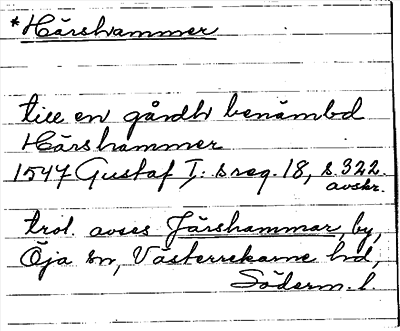 *Härshammer
till en gårdh benämbd
Härshammer
1547 Gustaf I:s reg. 18, s. 322.
avskr.
trol. avses Järshammar, by,
Öja sn, Västerrekarne hd,
Söderm. l